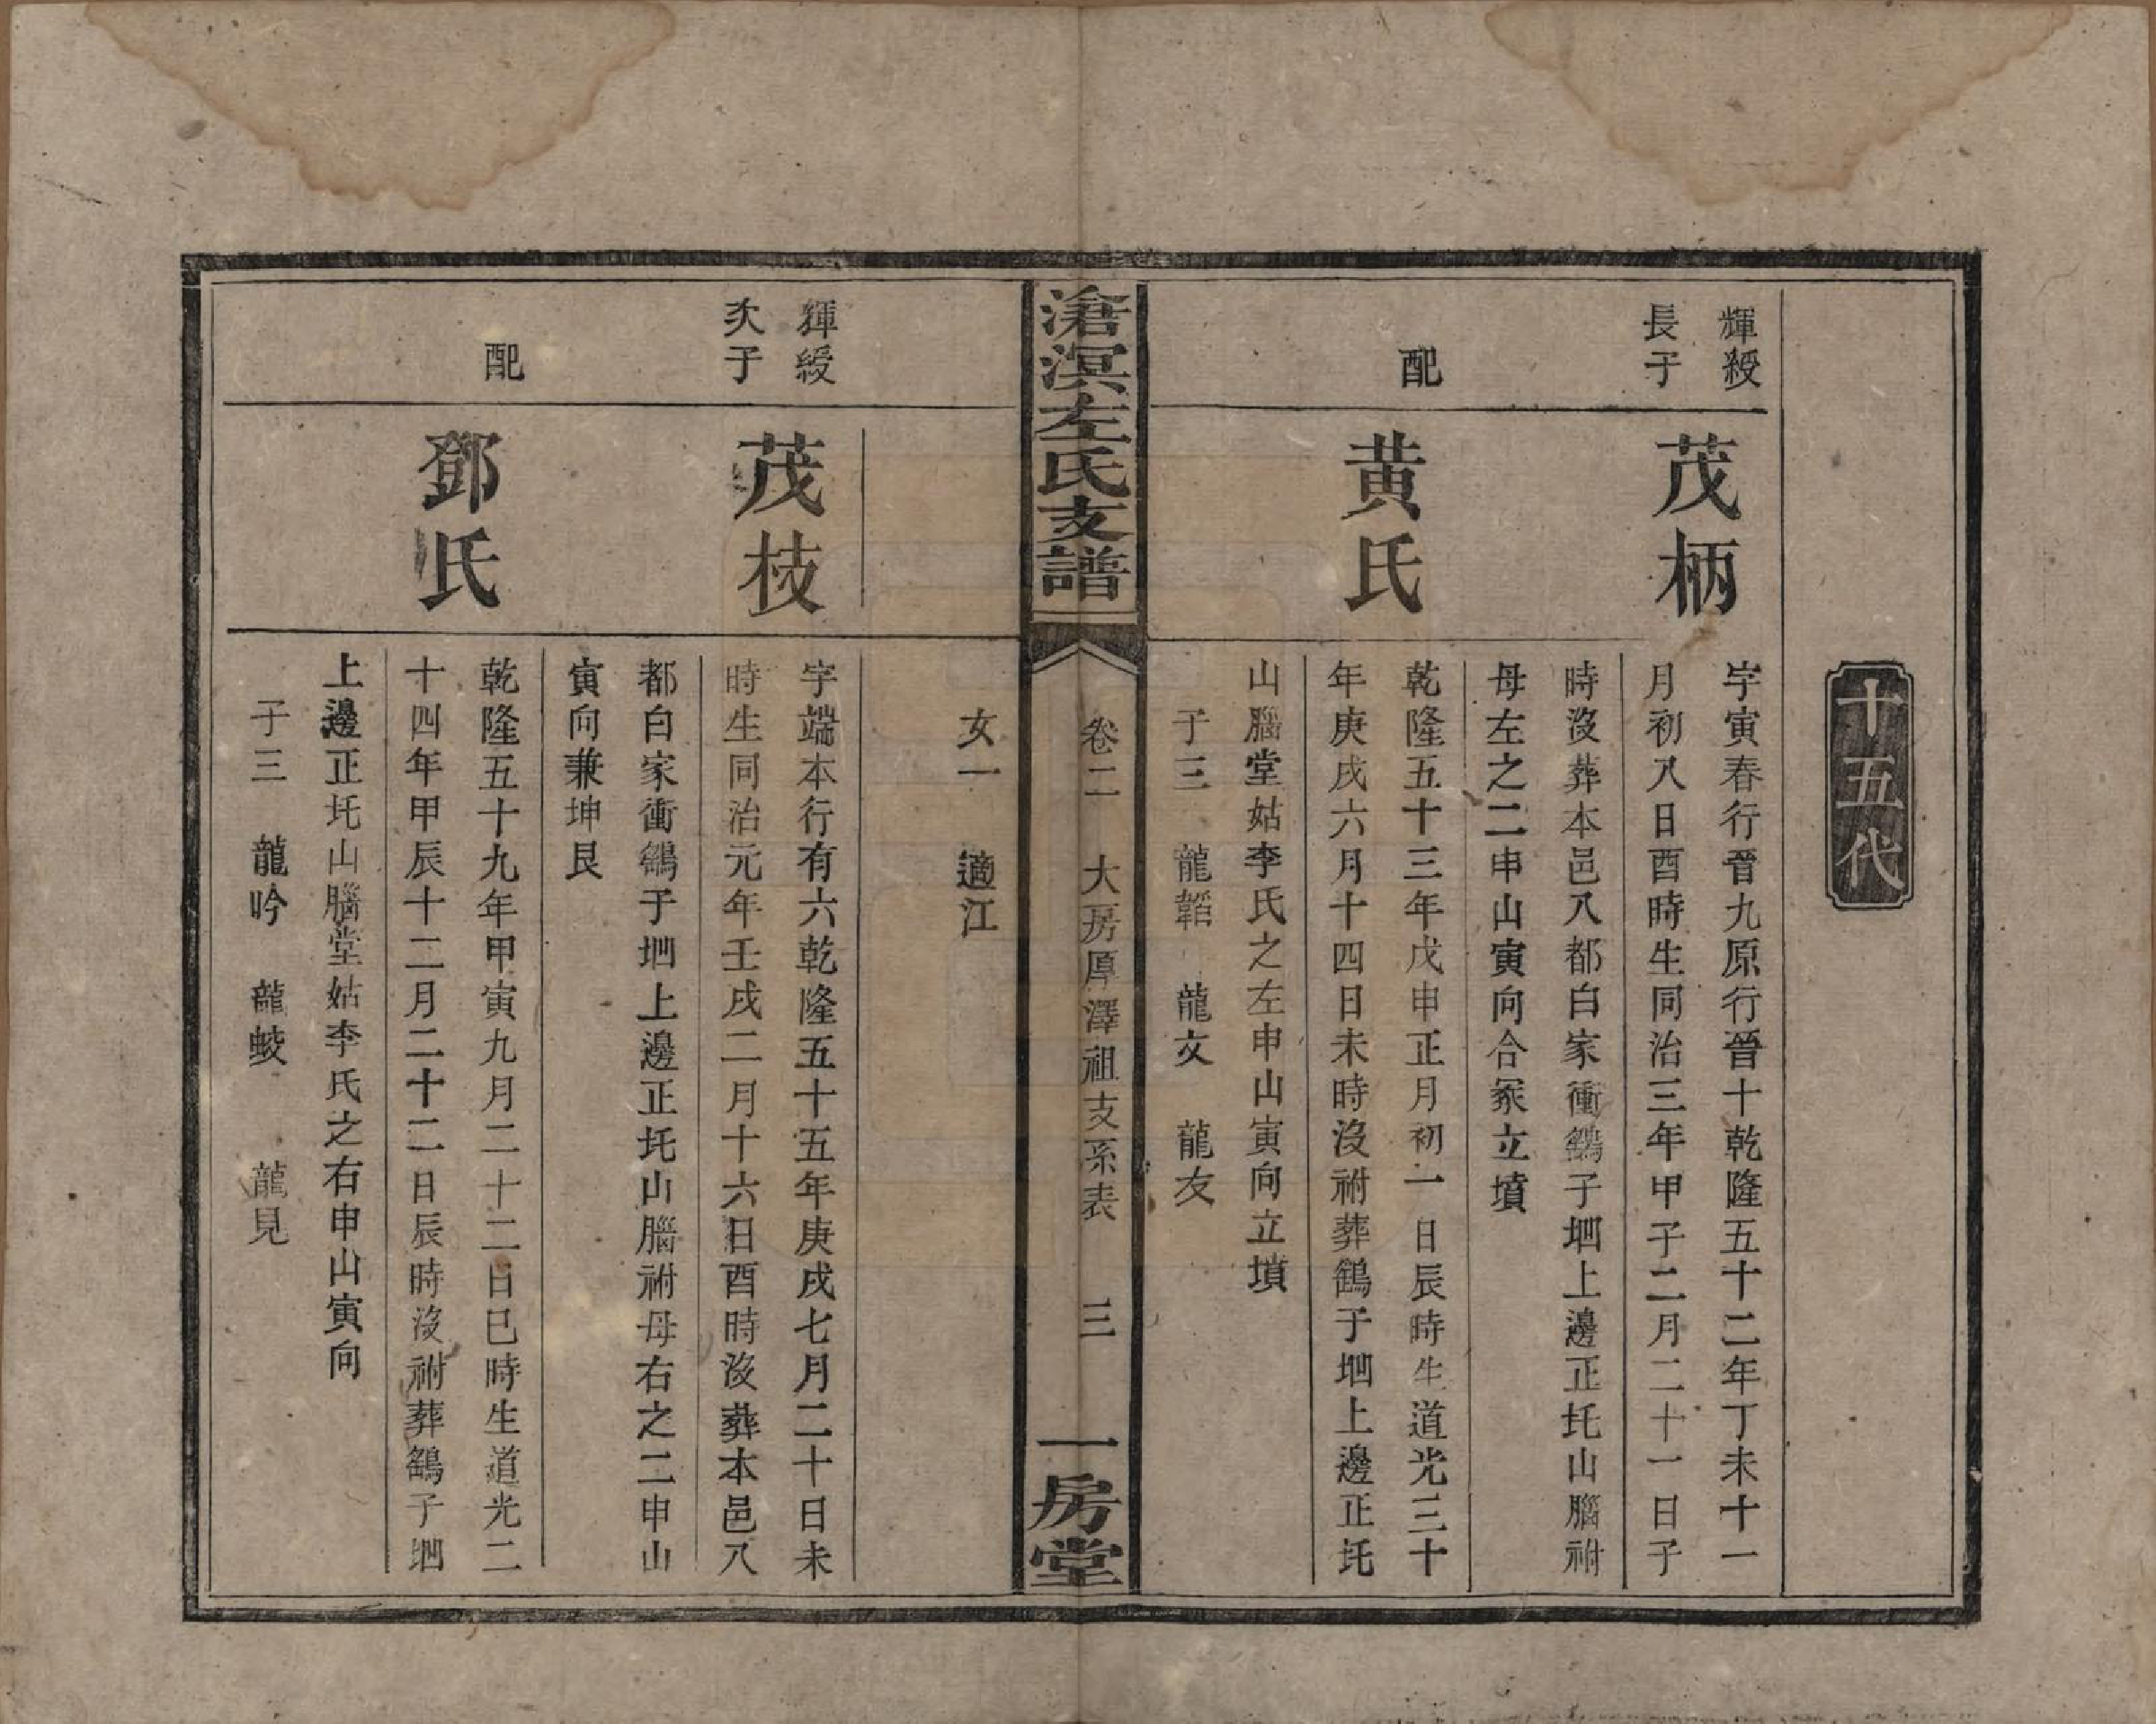 十五代
輝綬
長子
茂柄
字寅春行晉九原行晉十乾隆五十二年丁未十一
月初八日酉時生同治三年甲子二月二十一日子
時沒葬本邑八都白家衝鷂子堋上邊正圫山腦祔
母左之二申山寅向合冢立墳
配
黄氏
乾隆五十三年戊申正月初一日辰時生道光三十
年庚戌六月十四日未時沒祔葬鷂子堋上邊正圫
山腦堂姑李氏之左申山寅向立墳
子三 龍韜 龍文 龍友
滄溟左氏支譜
卷二 大房厚澤祖支系表 三
一房堂
女一 適江
輝綬
次子
茂枝
字端本行有六乾隆五十五年庚戌七月二十日未
時生同治元年壬戌二月十六日酉時沒葬本邑八
都白家衝鷂子堋上邊正圫山腦祔母右之二申山
寅向兼坤艮
配
鄧氏
乾隆五十九年甲寅九月二十二日巳時生道光二
十四年甲辰十二月二十二日辰時沒祔葬鷂子堋
上邊正圫山腦堂姑李氏之右申山寅向
子三 龍吟 龍蛟 龍見